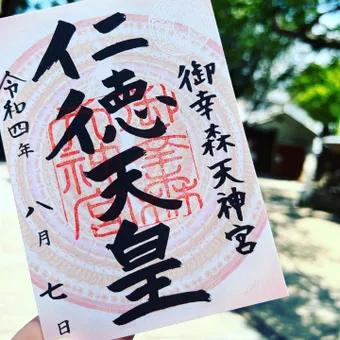 御幸森天神宮
仁徳天皇
令和四年 八月七日